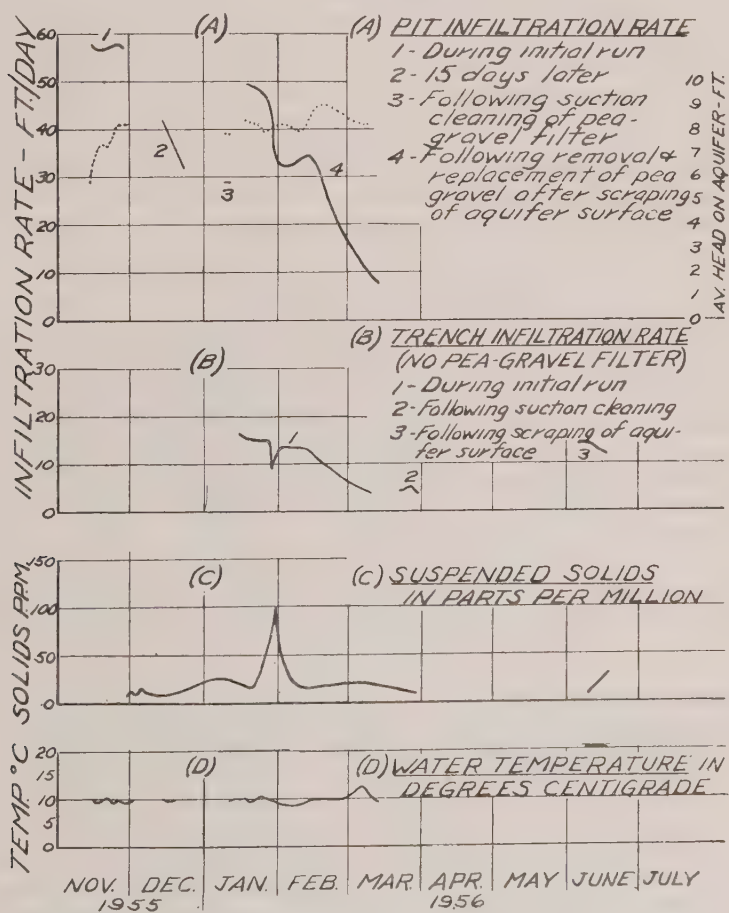 INFILTRATION RATE - FT./DAY
60
50
40
30
20
10
0
(A)
1
2
3
4
(A) PIT INFILTRATION RATE
1 - During initial run
2 - 15 days later
3 - Following suction
cleaning of pea-
gravel filter
4 - Following removal &
replacement of pea
gravel after scraping
of aquifer surface
10
9
8
7
6
5
4
3
2
1
0
AV. HEAD ON AQUIFER - FT.
30
20
10
0
(B)
1
(B) TRENCH INFILTRATION RATE
(NO PEA-GRAVEL FILTER)
1 - During initial run
2 - Following suction cleaning
3 - Following scraping of aqui-
fer surface
3
2
SOLIDS PPM.
150
100
50
0
(C)
(C) SUSPENDED SOLIDS
IN PARTS PER MILLION
TEMP °C
20
15
10
5
0
(D)
(D) WATER TEMPERATURE IN
DEGREES CENTIGRADE
NOV. DEC. JAN. FEB. MAR. APR. MAY JUNE JULY
1955 1956